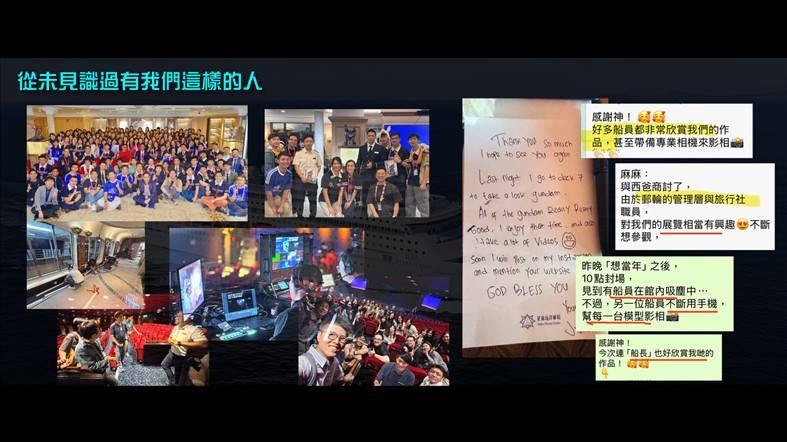 從未見識過有我們這樣的人
Thank you so much
I hope to see you again
Last night I go to deck 7
to take a look gundam.
All of the gundam Really Really
Good. I enjoy their time and also
I take a lot of Videos
Soon I will Post on my
and mention your website
GOD BLESS YOU
感謝神！🥰🥰
好多船員都非常欣賞我們的作
品，甚至帶備專業相機來影相📸
麻麻：
與西爸商討了，
由於郵輪的管理層與旅行社
職員，
對我們的展覽相當有興趣😍不斷
想參觀，
昨晚「想當年」之後，
10點封場，
見到有船員在館內吸塵中⋯
不過，另一位船員不斷用手機，
幫每一台模型影相📸
感謝神！
今次連「船長」也好欣賞我哋的
作品！🥰🥰
👇